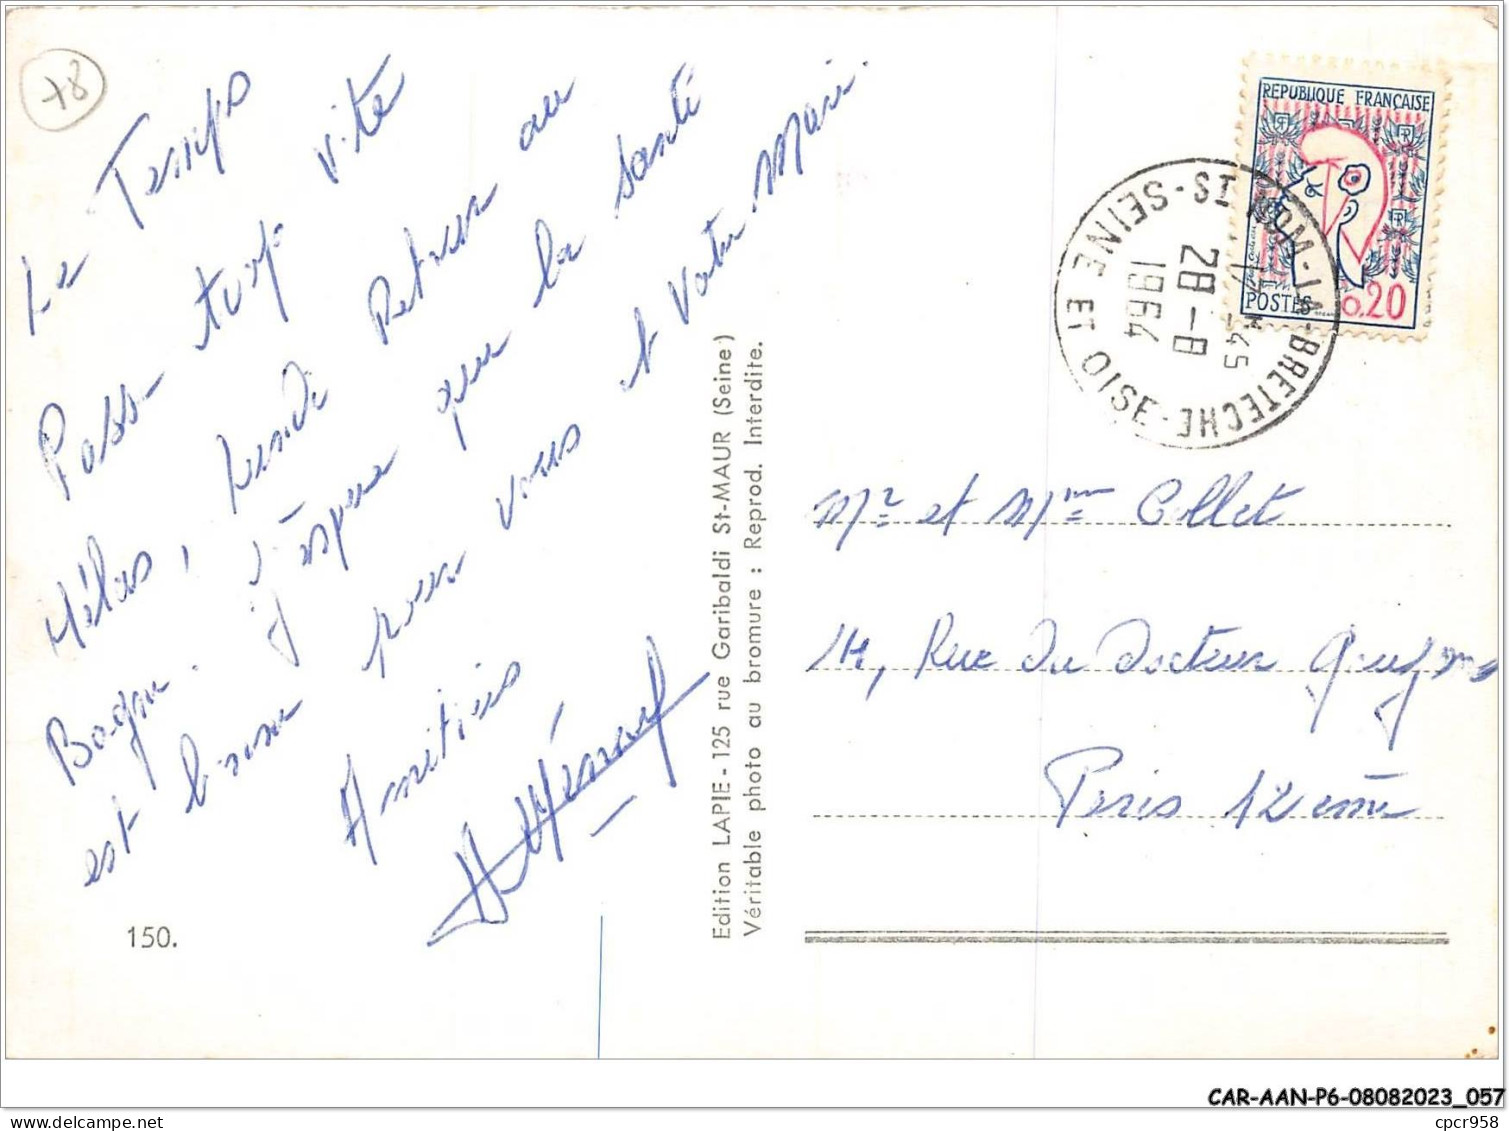 78
Le Temps
Passe trop vite
Hélas, Lundi Retour au
Bagne. J'éspère que la Santé
est bonne pour vous et Votre Mari.
Amitiés
150.
Edition LAPIE - 125 rue Garibaldi St-MAUR (Seine)
Véritable photo au bromure : Reprod. Interdite.
REPUBLIQUE FRANÇAISE
POSTES 0,20
ST NOM-LA-BRETECHE
28 -8
1964
SEINE ET OISE
Mr et Mme Collet
14, Rue Du Docteur
Paris 12ème
CAR-AAN-P6-08082023_057
cpcr958